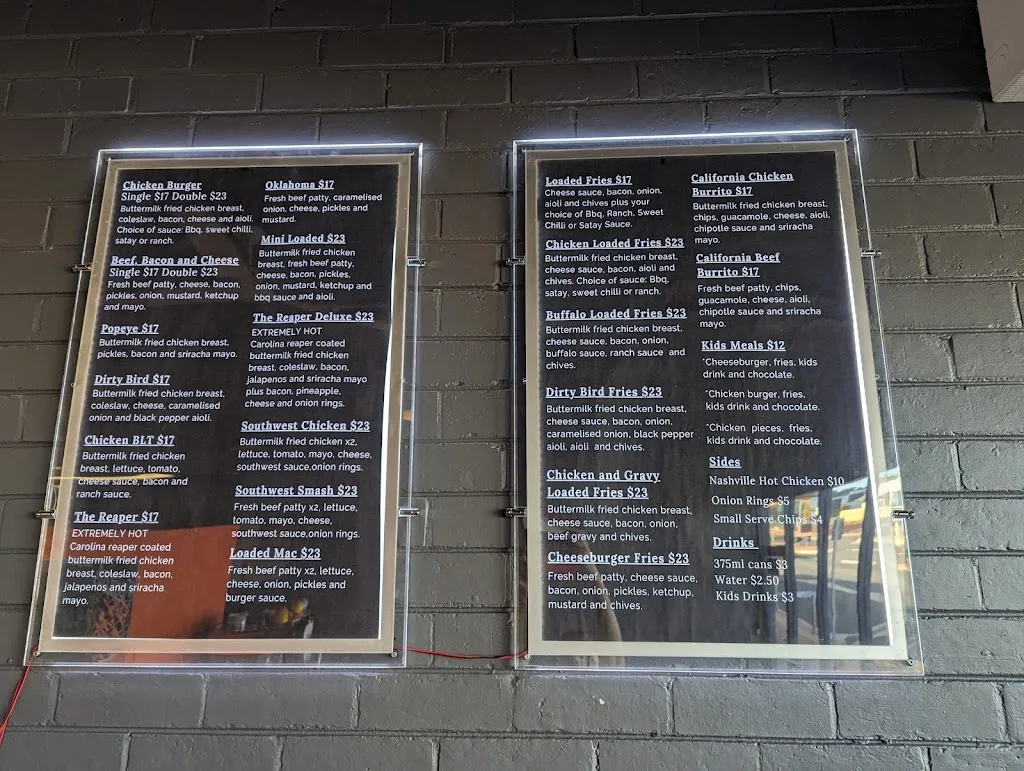 Chicken Burger
Single $17 Double $23
Buttermilk fried chicken breast,
coleslaw, bacon, cheese and aioli.
Choice of sauce: Bbq, sweet chilli,
satay or ranch.
Beef, Bacon and Cheese
Single $17 Double $23
Fresh beef patty, cheese, bacon,
pickles, onion, mustard, ketchup
and mayo.
Popeye $17
Buttermilk fried chicken breast,
pickles, bacon and sriracha mayo.
Dirty Bird $17
Buttermilk fried chicken breast,
coleslaw, cheese, caramelised
onion and black pepper aioli.
Chicken BLT $17
Buttermilk fried chicken
breast, lettuce, tomato,
cheese sauce, bacon and
ranch sauce.
The Reaper $17
EXTREMELY HOT
Carolina reaper coated
buttermilk fried chicken
breast, coleslaw, bacon,
jalapenos and sriracha
mayo.
Oklahoma $17
Fresh beef patty, caramelised
onion, cheese, pickles and
mustard.
Mini Loaded $23
Buttermilk fried chicken
breast, fresh beef patty,
cheese, bacon, pickles,
onion, mustard, ketchup and
bbq sauce and aioli.
The Reaper Deluxe $23
EXTREMELY HOT
Carolina reaper coated
buttermilk fried chicken
breast, coleslaw, bacon,
jalapenos and sriracha mayo
plus bacon, pineapple,
cheese and onion rings.
Southwest Chicken $23
Buttermilk fried chicken x2,
lettuce, tomato, mayo, cheese,
southwest sauce,onion rings.
Southwest Smash $23
Fresh beef patty x2, lettuce,
tomato, mayo, cheese,
southwest sauce,onion rings.
Loaded Mac $23
Fresh beef patty x2, lettuce,
cheese, onion, pickles and
burger sauce.
Loaded Fries $17
Cheese sauce, bacon, onion,
aioli and chives plus your
choice of Bbq, Ranch, Sweet
Chilli or Satay Sauce.
Chicken Loaded Fries $23
Buttermilk fried chicken breast,
cheese sauce, bacon, aioli and
chives. Choice of sauce: Bbq,
satay, sweet chilli or ranch.
Buffalo Loaded Fries $23
Buttermilk fried chicken breast,
cheese sauce, bacon, onion,
buffalo sauce, ranch sauce and
chives.
Dirty Bird Fries $23
Buttermilk fried chicken breast,
cheese sauce, bacon, onion,
caramelised onion, black pepper
aioli, aioli and chives.
Chicken and Gravy
Loaded Fries $23
Buttermilk fried chicken breast,
cheese sauce, bacon, onion,
beef gravy and chives.
Cheeseburger Fries $23
Fresh beef patty, cheese sauce,
bacon, onion, pickles, ketchup,
mustard and chives.
California Chicken
Burrito $17
Buttermilk fried chicken breast,
chips, guacamole, cheese, aioli,
chipotle sauce and sriracha
mayo.
California Beef
Burrito $17
Fresh beef patty, chips,
guacamole, cheese, aioli,
chipotle sauce and sriracha
mayo.
Kids Meals $12
*Cheeseburger, fries, kids
drink and chocolate.
*Chicken burger, fries,
kids drink and chocolate.
*Chicken pieces, fries,
kids drink and chocolate.
Sides
Nashville Hot Chicken $10
Onion Rings $5
Small Serve Chips $4
Drinks
375ml cans $3
Water $2.50
Kids Drinks $3